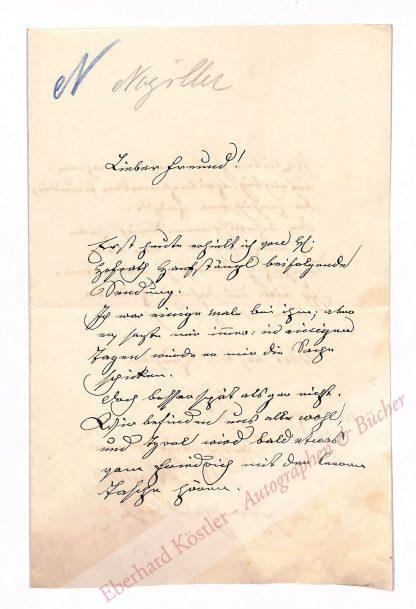 N Nogiller
Lieber Freund!
Erst heute erhielt ich von H.
Hofrath Hanfstängl beifolgende
Sendung.
Ich war einige male bei ihm, aber
er sagte mir immer: in einigen
Tagen würde er mir die Sache
schicken.
Doch besser spät als gar nicht.
Wir befinden uns alle wohl
und wird bald etwas
vom Friedrich mit der leeren
Tasche hören.
Eberhard Köstler - Autographen & Bücher